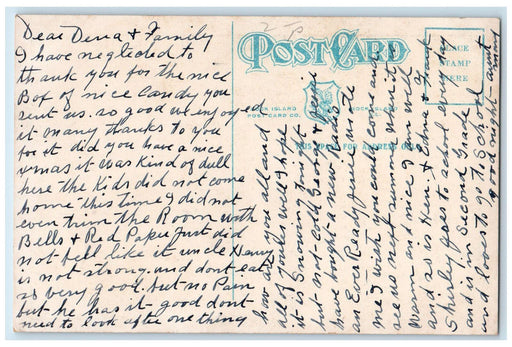 Dear Dena & Family
I have neglected to
thank you for the nice
Box of nice Candy you
sent us. so good we enjoyed
it many thanks to you
for it did you have a nice
xmas it was kind of dull
here the Kids did not come
home this time I did not
even trim the Room with
Bells & Red Paper Just did
not feel like it uncle Henry
is not strong and dont eat
so very good but no Pain
but he has it good dont
need to look after one thing
POST CARD
PLACE
STAMP
HERE
ROCK ISLAND
POST CARD CO.
THIS SPACE FOR ADDRESS ONLY
how are you all and
all of your well I hope
it is Snowing tonight
but not cold George &
have bought a new Radio
an Ever Ready fine wrote
me I wish you could come and
see us next summer when it is
warm and nice I am well
and so is Hen & Edna & Frank
Shirley goes to school every day
and is in Second Grade
and loves to go to School
good night - aunt
mary